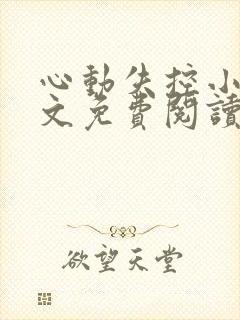 心動失控小
文免費閱讀
欲望天堂